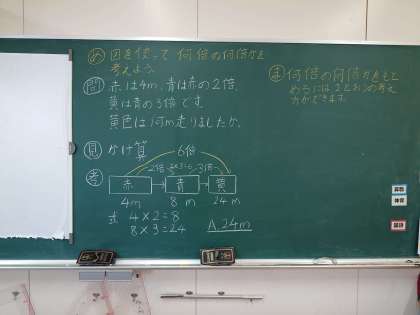 め 図を使って何倍の何倍かを
考えよう。
問 赤は4m、青は赤の2倍、
黄は青の3倍です。
黄色は何m走りましたか。
見 かけ算
考
6倍
2倍 2×3=6 3倍
赤 青 黄
4m 8m 24m
式 4×2=8
8×3=24 A.24m
ま 何倍の何倍かをもと
めるには2とおりの考え
方ができます。
算数
体育
国語